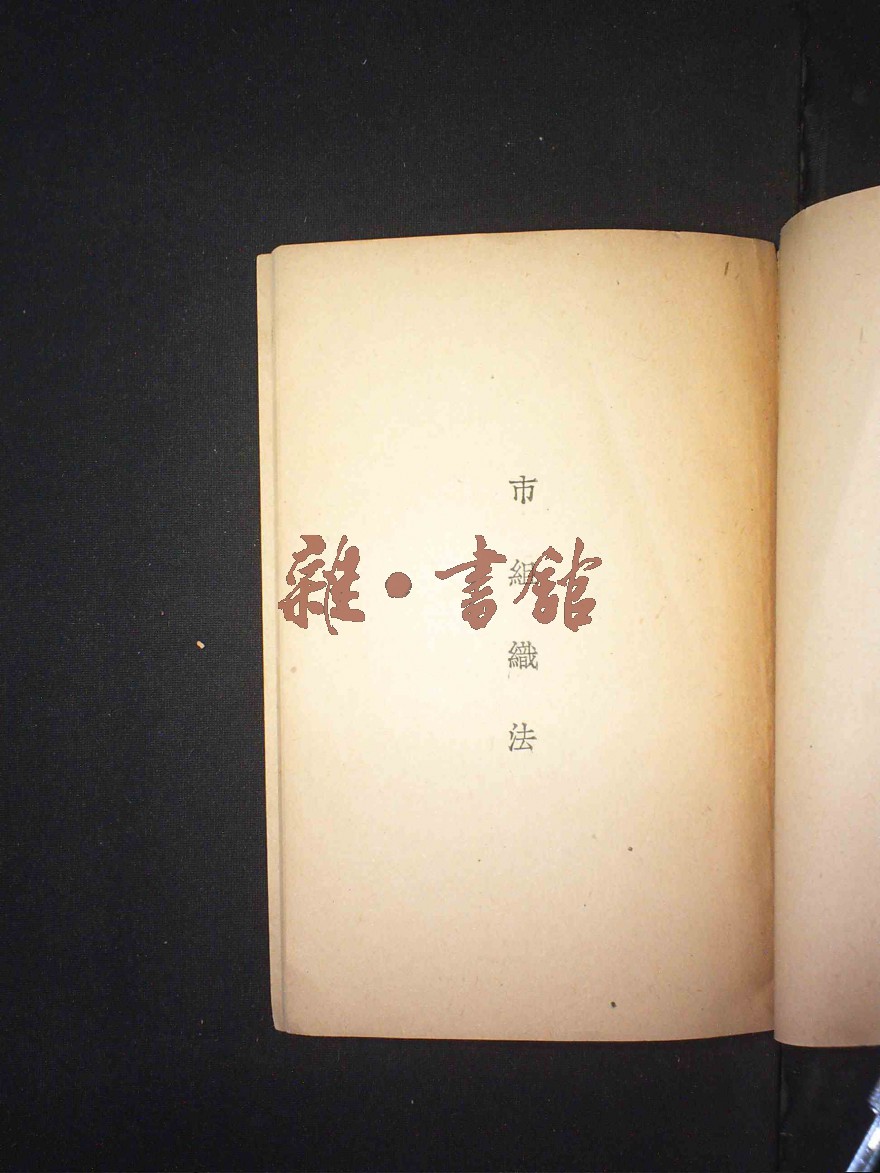 市組織法
雜·書館